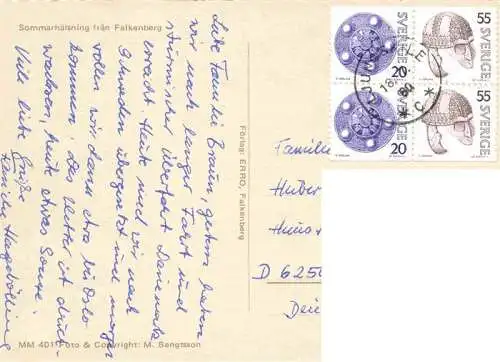 Sommarhälsning från Falkenberg
Liebe Familie Braun, gestern haben
wir nach langer Fahrt und
stürmischer Überfahrt Dänemark
erreicht. Heute sind wir nach
Schweden übergesetzt und morgen
wollen wir dann etwa bis Oslo
kommen. das Wetter ist durch-
wachsen, heute etwas Sonne.
Viele liebe Grüße
Familie
MM 401 Foto & Copyright: M. Bengtsson
Förlag: ERRO, Falkenberg
SVERIGE
20
SVERIGE
55
SVERIGE
20
SVERIGE
55
18
80
* C *
Familie
Huber
Haus
D 6250